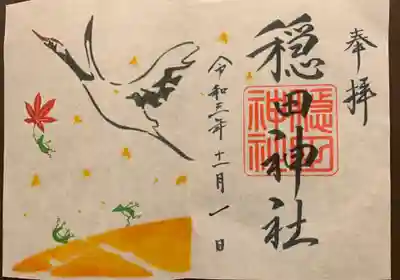 奉拝
穏田神社
穏田
神社
令和三年十一月一日